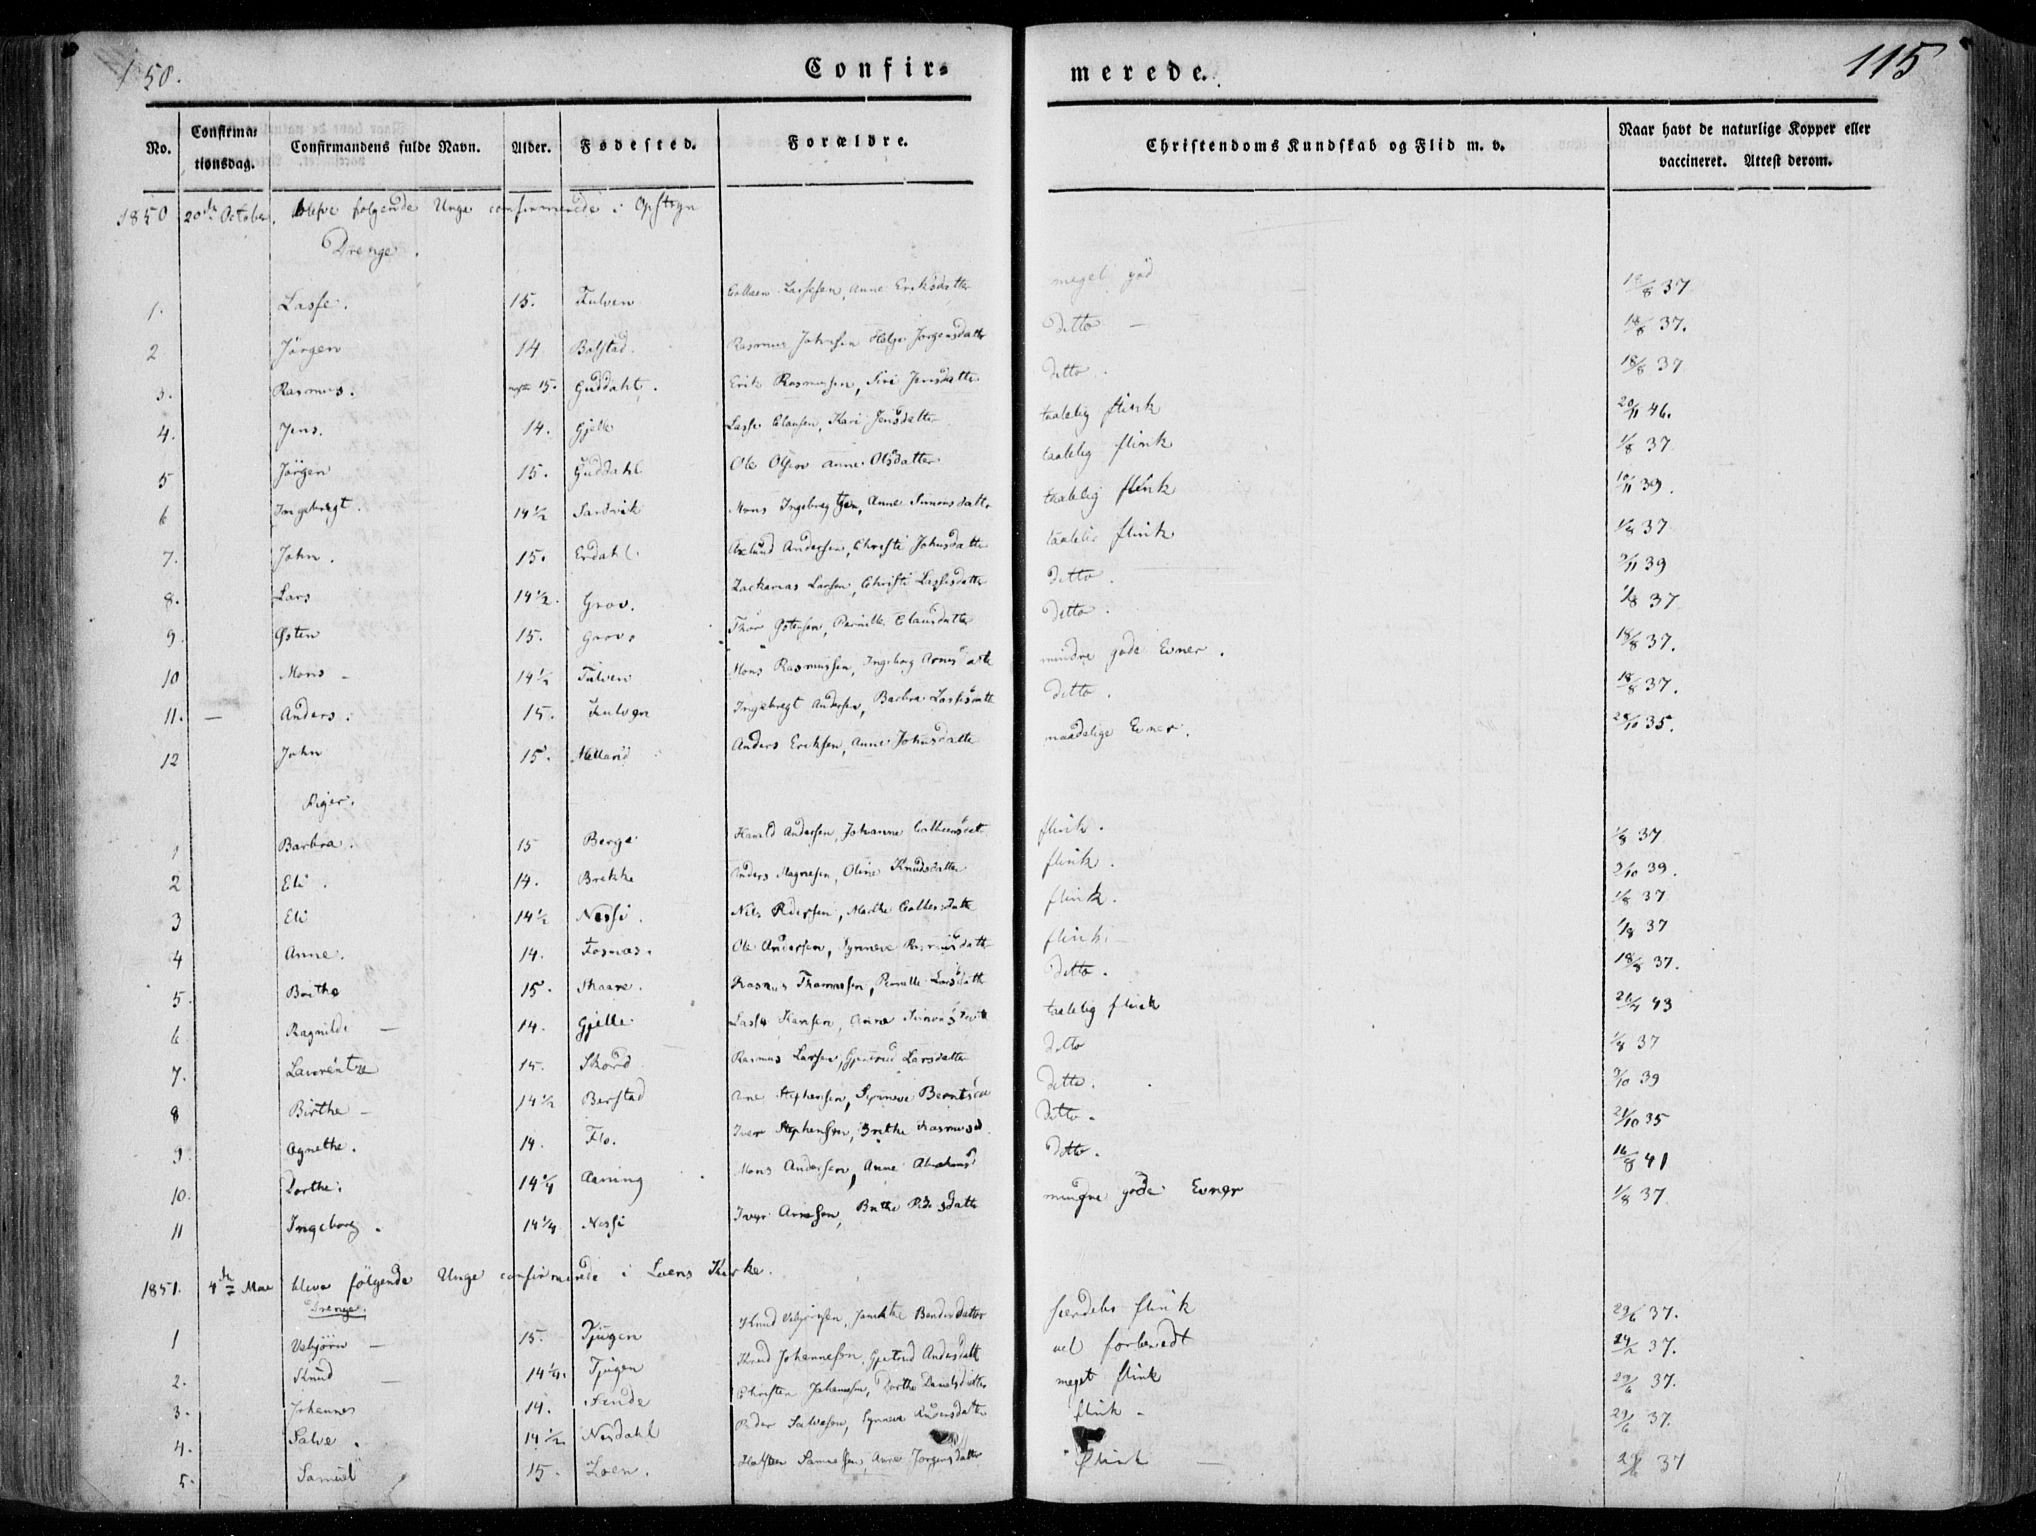 1850.
Confir-
merede.
115
No.
Confirma-
tionsdag.
Confirmandens fulde Navn.
Alder.
Fødested.
Forældre.
Christendoms Kundskab og Flid m. v.
Naar havt de naturlige Kopper eller
vaccineret. Attest derom.
1850 20de October. bleve følgende Unge confirmerede i Opstryn
Drenge.
1. Lasse. 15. Fulven Colben Lassesen, Anne Eriksdatter meget god 18/8 37
2 Jörgen 14 Bolstad. Rasmus Johnsen Helge Jörgensdatter Ditto - 18/8 37.
3. Rasmus. 15. Guddahl. Erik Rasmussen, Siri Jensdatter ditto. 18/8 37
4. Jens. 14. Gjelle Lasse Clausen, Kari Jensdatter taalelig flink 20/11 46.
5 Jörgen 15. Guddahl Ole Olsen Anne Olsdatter taalelig flink 1/8 37
6 Ingebregt. 14 1/2 Sandvik Mons Ingebregtsen, Anne Simonsdatter taalelig flink 10/11 39.
7. John. 15. Erdahl. Anderssen, Christi Johnsdatter taalelig flink 1/8 37
8. Lars 14 1/2. Grov. Zacharias Larsen, Christi Lassesdatter ditto. 2/11 39
9. Østen 15. Grov. Thor Østensen, Pernille Clausdatter ditto. 1/8 37
10 Mons - 14 1/2 Fulven Mons Rasmussen, Ingeborg Arnesdatter mindre gode Evner. 18/8 37.
11. - Anders. 15. Fulven Ingebregt Andersen, Barbra Lassesdatter ditto. 18/8 37.
12 John 15. Melland Anders Eriksen, Anne Johnsdatter maadelige Evner. 28/10 35.
Piger.
1 Barbra. 15 Berge Harald Andersen, Johanne flink. 1/8 37
2 Eli. 14. Brekke Anders Magnesen, Oline Knudsdatter flink. 2/10 39.
3 Eli 14 1/2 Nesse. Nils Pedersen, Marthe flink. 1/8 37
4 Anne. 14. Fosnæs. Ole Anderssen, Synneve Rasmusdatter flink. 1/8 37
5. Brithe 15. Skaare. Rasmus Thomassen, Pernille Larsdatter Ditto. 18/8 37.
6 Ragnilde - 14. Gjelle Lasse Hansen, Anne Simonsdatter taalelig flink 21/7 43
7. 15. Skord Rasmus Larsen, Gjertrud Larsdatter ditto 1/8 37
8 Birthe - 14 1/2 Berstad Stephensen, Synneve ditto. 9/10 39
9. Agnethe. 14. Flo. Iver Stephensen, Brithe Rasmusd. Ditto. 21/10 35
10. Dorthe. 14 1/4 Aaning Mons Andersen, Anne Abrahamsd Ditto. 16/8 41
11 Ingeborg. 14 1/4 Nesse Iver Arnesen, Brithe Pedersdatter mindre gode Evner 1/8 37.
1851. 4de Mai bleve følgende Unge confirmerede i Loens Kirke.
Drenge.
1 Vebjörn - 15. Tjugen Knud Vebjörnsen, særdeles flink 29/6 37.
2. Knud - 14 1/4. Tjugen Knud Johannesen, Gjertrud Andersdatt vel forberedt 24/2 37.
3. Johannes 14. Sunde Christen Johannesen, Dorthe Danielsdatter meget flink 29/6 37.
4. Salve. 14 1/2 Nesdahl Peder Salvesen, Synneve flink - 29/6 37.
5. Samuel 15. Loen. Halsten Samuelsen, Anne Jörgensdatter flink 29/6 37